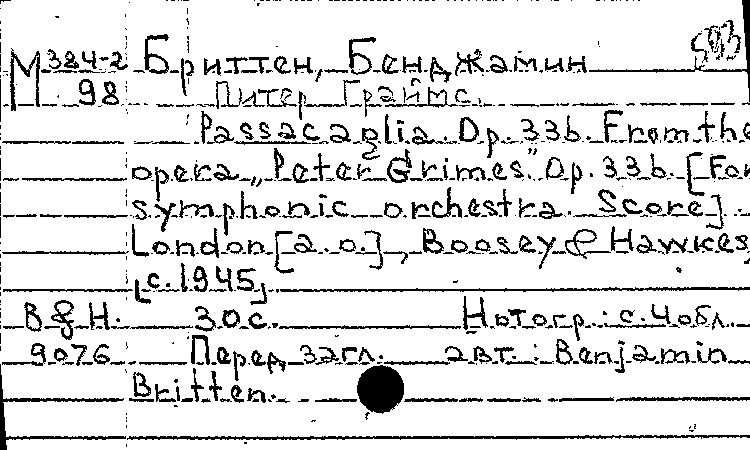 М 384-2 Бриттен, Бенджамин 593
98 Питер Граймс.
Passacaglia. Op. 33b. From the
opera „Peter Grimes." Op. 33b. [For
symphonic orchestra. Score].
London [a.o.], Boosey & Hawkes,
[c. 1945]
B & H. 30 с. Нотогр.: с. 4 обл.
9076 Перед загл. авт.: Benjamin
Britten.